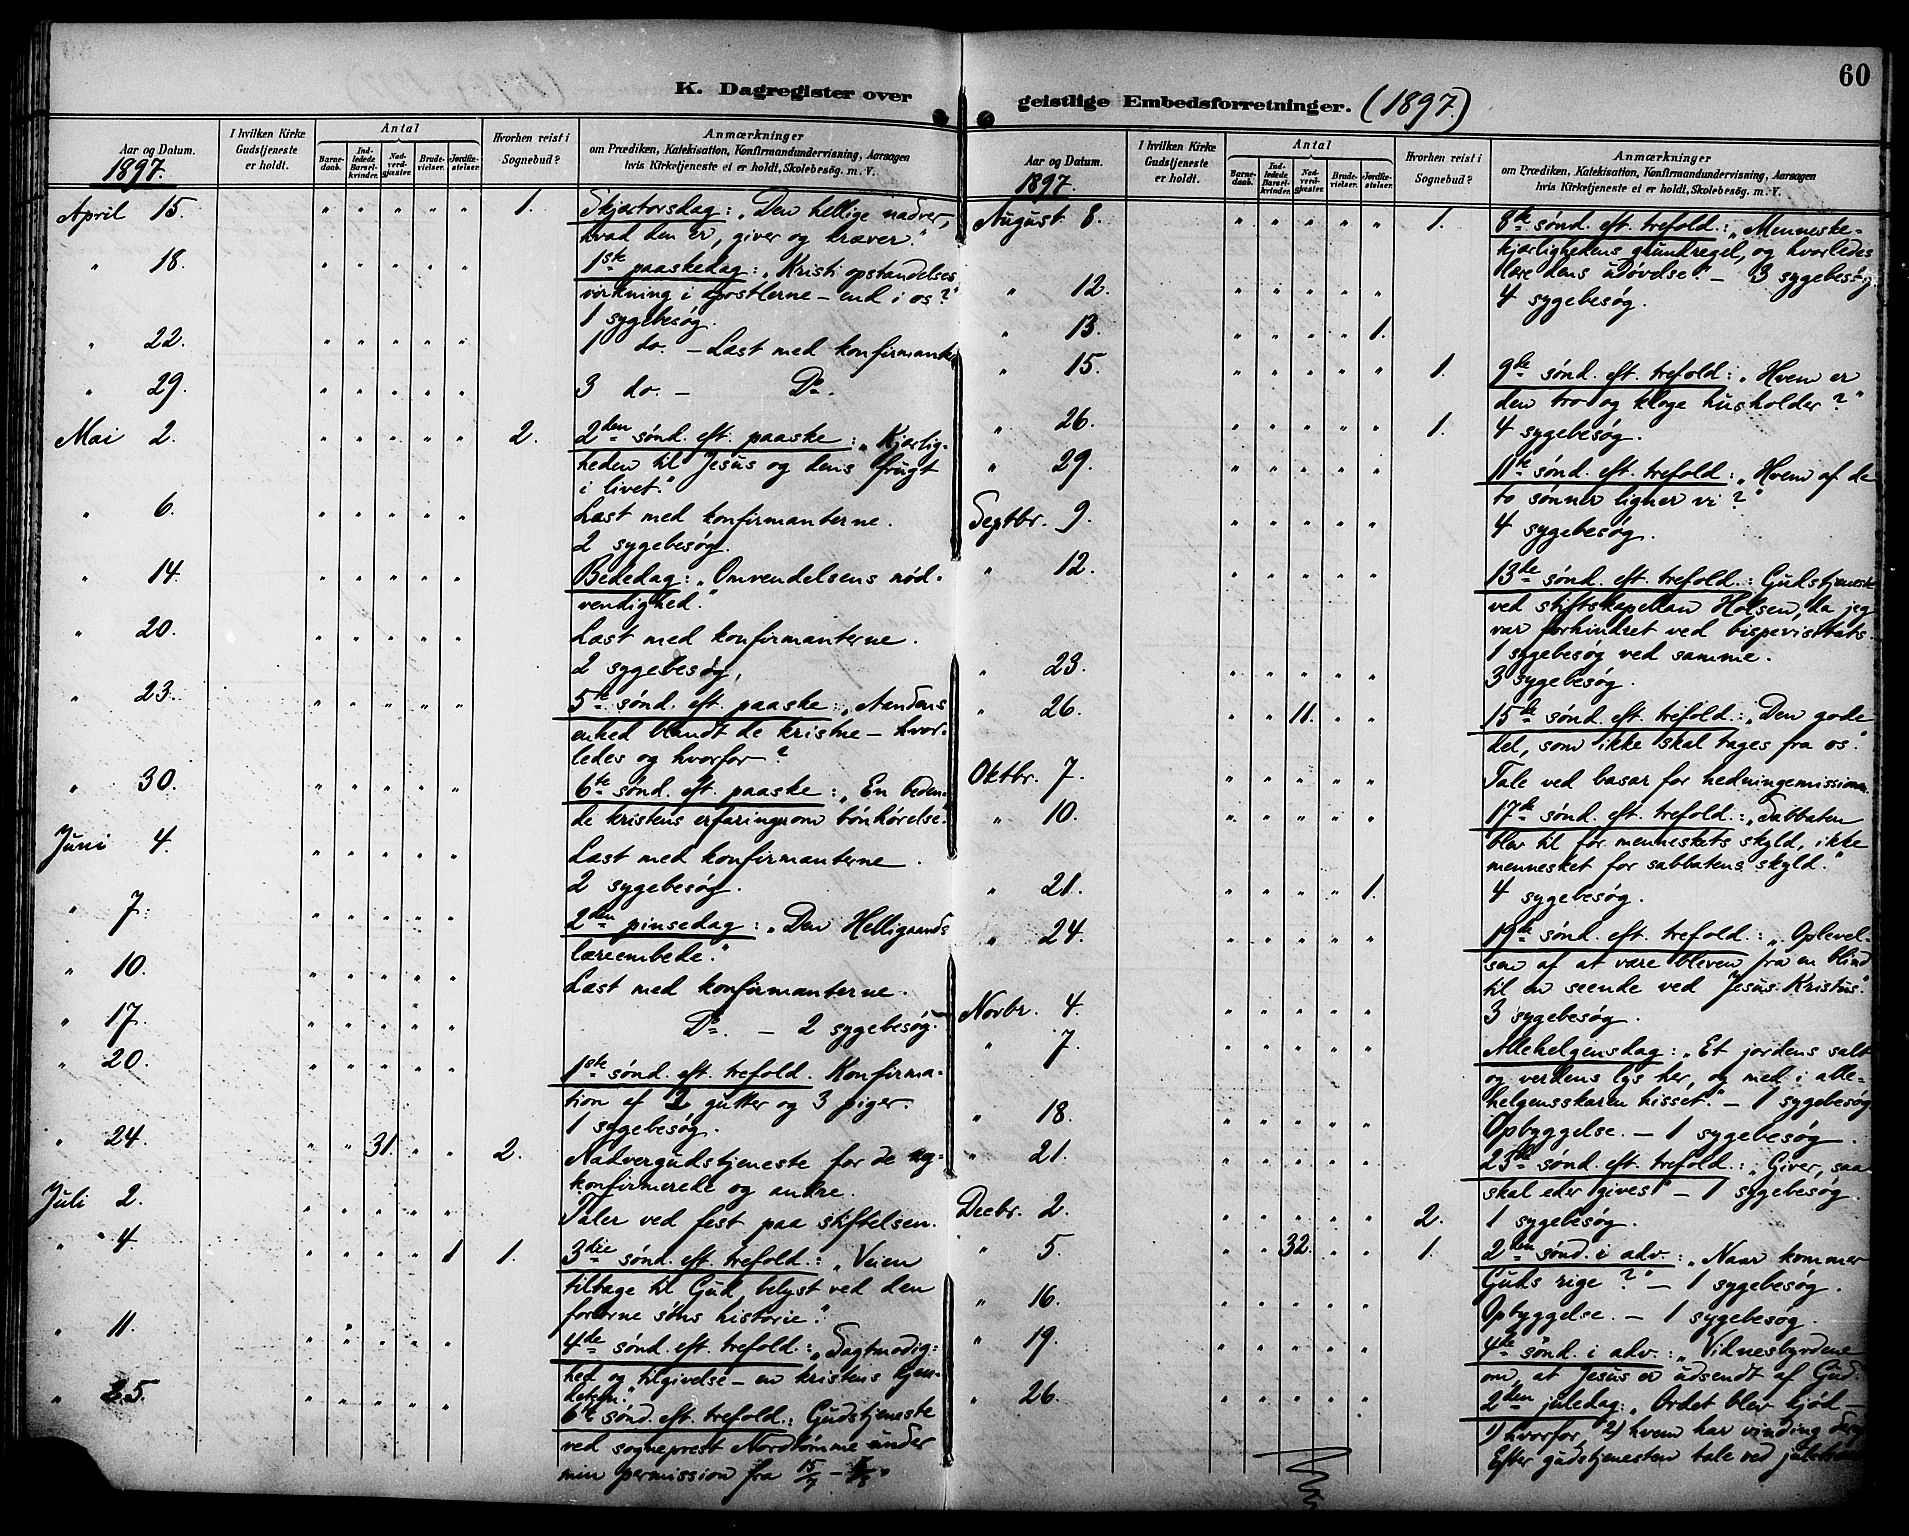 60
K. Dagregister over
Aar og Datum.
I hvilken Kirke Gudstjeneste er holdt.
Antal
Barnedaab.
Indledede Barselkvinder.
Nadverdgjæster.
Brudevielser.
Jordfæstelser.
Hvorhen reist i Sognebud?
Anmærkninger
om Prædiken, Katekisation, Konfirmandundervisning, Aarsagen
hvis Kirketjeneste ei er holdt, Skolebesög. m. V.
1897.
April 15. " " " " " 1. Skjærtorsdag: „Den hellige nadver,
hvad den er, giver og kræver."
" 18. " " " " " 1ste paaskedag: „Kristi opstandelses
virkning i apostlerne – end i os?"
1 sygebesøg.
" 22. " " " " " 1 do. – Læst med konfirmanter
" 29. " " " " " 3 do. – Do.
Mai 2. " " " " " 2. 2den sønd. eft. paaske: „Kjærlig-
heden til Jesus og dens frugt
i livet."
" 6. " " " " " Læst med konfirmanterne.
2 sygebesøg.
" 14. " " " " " Bededag: „Omvendelsens nød-
vendighed."
" 20. " " " " " Læst med konfirmanterne.
2 sygebesøg.
" 23. " " " " " 5te sønd. eft. paaske: „Aandens
enhed blandt de kristne – hvor-
ledes og hvorfor?
" 30. " " " " " 6te sønd. eft. paaske: „En beden-
de kristens erfaringer om bønhørelse."
Juni 4. " " " " " Læst med konfirmanterne.
2 sygebesøg.
" 7. " " " " " 2den pinsedag: „Den Helligaands
læreembede."
" 10. " " " " " Læst med konfirmanterne.
" 17. " " " " " Do. – 2 sygebesøg.
" 20. " " " " " 1ste sønd. eft. trefold. Konfirma-
tion af 2 gutter og 3 piger.
1 sygebesøg.
" 24. " " 31. " " 2. Nadvergudstjeneste for de ny-
konfirmerede og andre.
Juli 2. " " " " " Taler ved fest paa stiftelsen.
" 4. " " " " 1 1. 3die sønd. eft. trefold.: „Veien
tilbage til Gud, belyst ved den
forlorne søns historie."
" 11. " " " " " 4de sønd. eft. trefold.: „Sagtmodig-
hed og tilgivelse – en kristens kjen-
detegn."
" 25. " " " " " 6te sønd. eft. trefold.: Gudstjeneste
ved sogneprest Nordtømme under
min permission fra 15/7 –
geistlige Embedsforretninger. (1897.)
Aar og Datum.
I hvilken Kirke Gudstjeneste er holdt.
Antal
Barnedaab.
Indledede Barselkvinder.
Nadverdgjæster.
Brudevielser.
Jordfæstelser.
Hvorhen reist i Sognebud?
Anmærkninger
om Prædiken, Katekisation, Konfirmandundervisning, Aarsagen
hvis Kirketjeneste ei er holdt, Skolebesög. m. V.
1897.
August 8. " " " " " 1. 8de sønd. eft. trefold.: „Menneske-
kjærlighedens grundregel, og hvorledes
lære dens udøvelse." – 3 sygebesøg
" 12. " " " " " 4 sygebesøg.
" 13. " " " " 1.
" 15. " " " " " 1. 9de sønd. eft. trefold.: „Hvem er
den tro og kloge husholder?"
" 26. " " " " " 1. 4 sygebesøg.
" 29. " " " " " 11te sønd. eft. trefold.: „Hvem af de
to sønner ligner vi?"
Septbr. 9. " " " " " 4 sygebesøg.
" 12. " " " " " 13de sønd. eft. trefold.: Gudstjeneste
ved stiftskapellan Holsen, da jeg
var forhindret ved bispevisitats.
1 sygebesøg ved samme.
" 23. " " " " " 3 sygebesøg.
" 26. " " 11. " " 15de sønd. eft. trefold.: „Den gode
del, som ikke skal tages fra os."
Oktbr. 7. " " " " " Tale ved basar for hedningemissionen.
" 10. " " " " " 17de sønd. eft. trefold.: „Sabbaten
blev til for menneskets skyld, ikke
mennesket for sabbatens skyld."
" 21. " " " " 1. 4 sygebesøg.
" 24. " " " " " 19de sønd. eft. trefold.: „Oplevel-
sen af at være bleven fra en blind
til en seende ved Jesus Kristus."
Novbr. 4. " " " " " 3 sygebesøg.
" 7. " " " " " Allehelgensdag: „Et jordens salt
og verdens lys her, og med i alle-
helgensskaren hisset." – 1 sygebesøg.
" 18. " " " " " Opbyggelse. – 1 sygebesøg.
" 21. " " " " " 23de sønd. eft. trefold.: „Giver, saa
skal eder gives" – 1 sygebesøg.
Decbr. 2. " " " " " 2. 1 sygebesøg.
" 5. " " 32. " " 1. 2den sønd. i adv.: „Naar kommer
Guds rige?" – 1 sygebesøg.
" 16. " " " " " Opbyggelse. – 1 sygebesøg.
" 19. " " " " " 4de sønd. i adv.: „Vidnesbyrdene
om, at Jesus er udsendt af Gud."
" 26. " " " " " 2den juledag: „Ordet blev kjød –
1) hvorfor, 2) hvem har vinding
Efter gudstjenesten tale ved